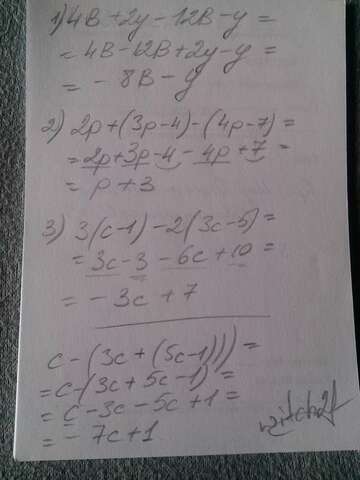 1) 4В + 2y - 12В - y =
= 4В - 12В + 2y - y =
= - 8В - y
2) 2p + (3p - 4) - (4p - 7) =
= 2p + 3p - 4 - 4p + 7 =
= p + 3
3) 3(c - 1) - 2(3c - 5) =
= 3c - 3 - 6c + 10 =
= - 3c + 7
c - (3c + (5c - 1))) =
= c - (3c + 5c - 1) =
= c - 3c - 5c + 1 =
= - 7c + 1